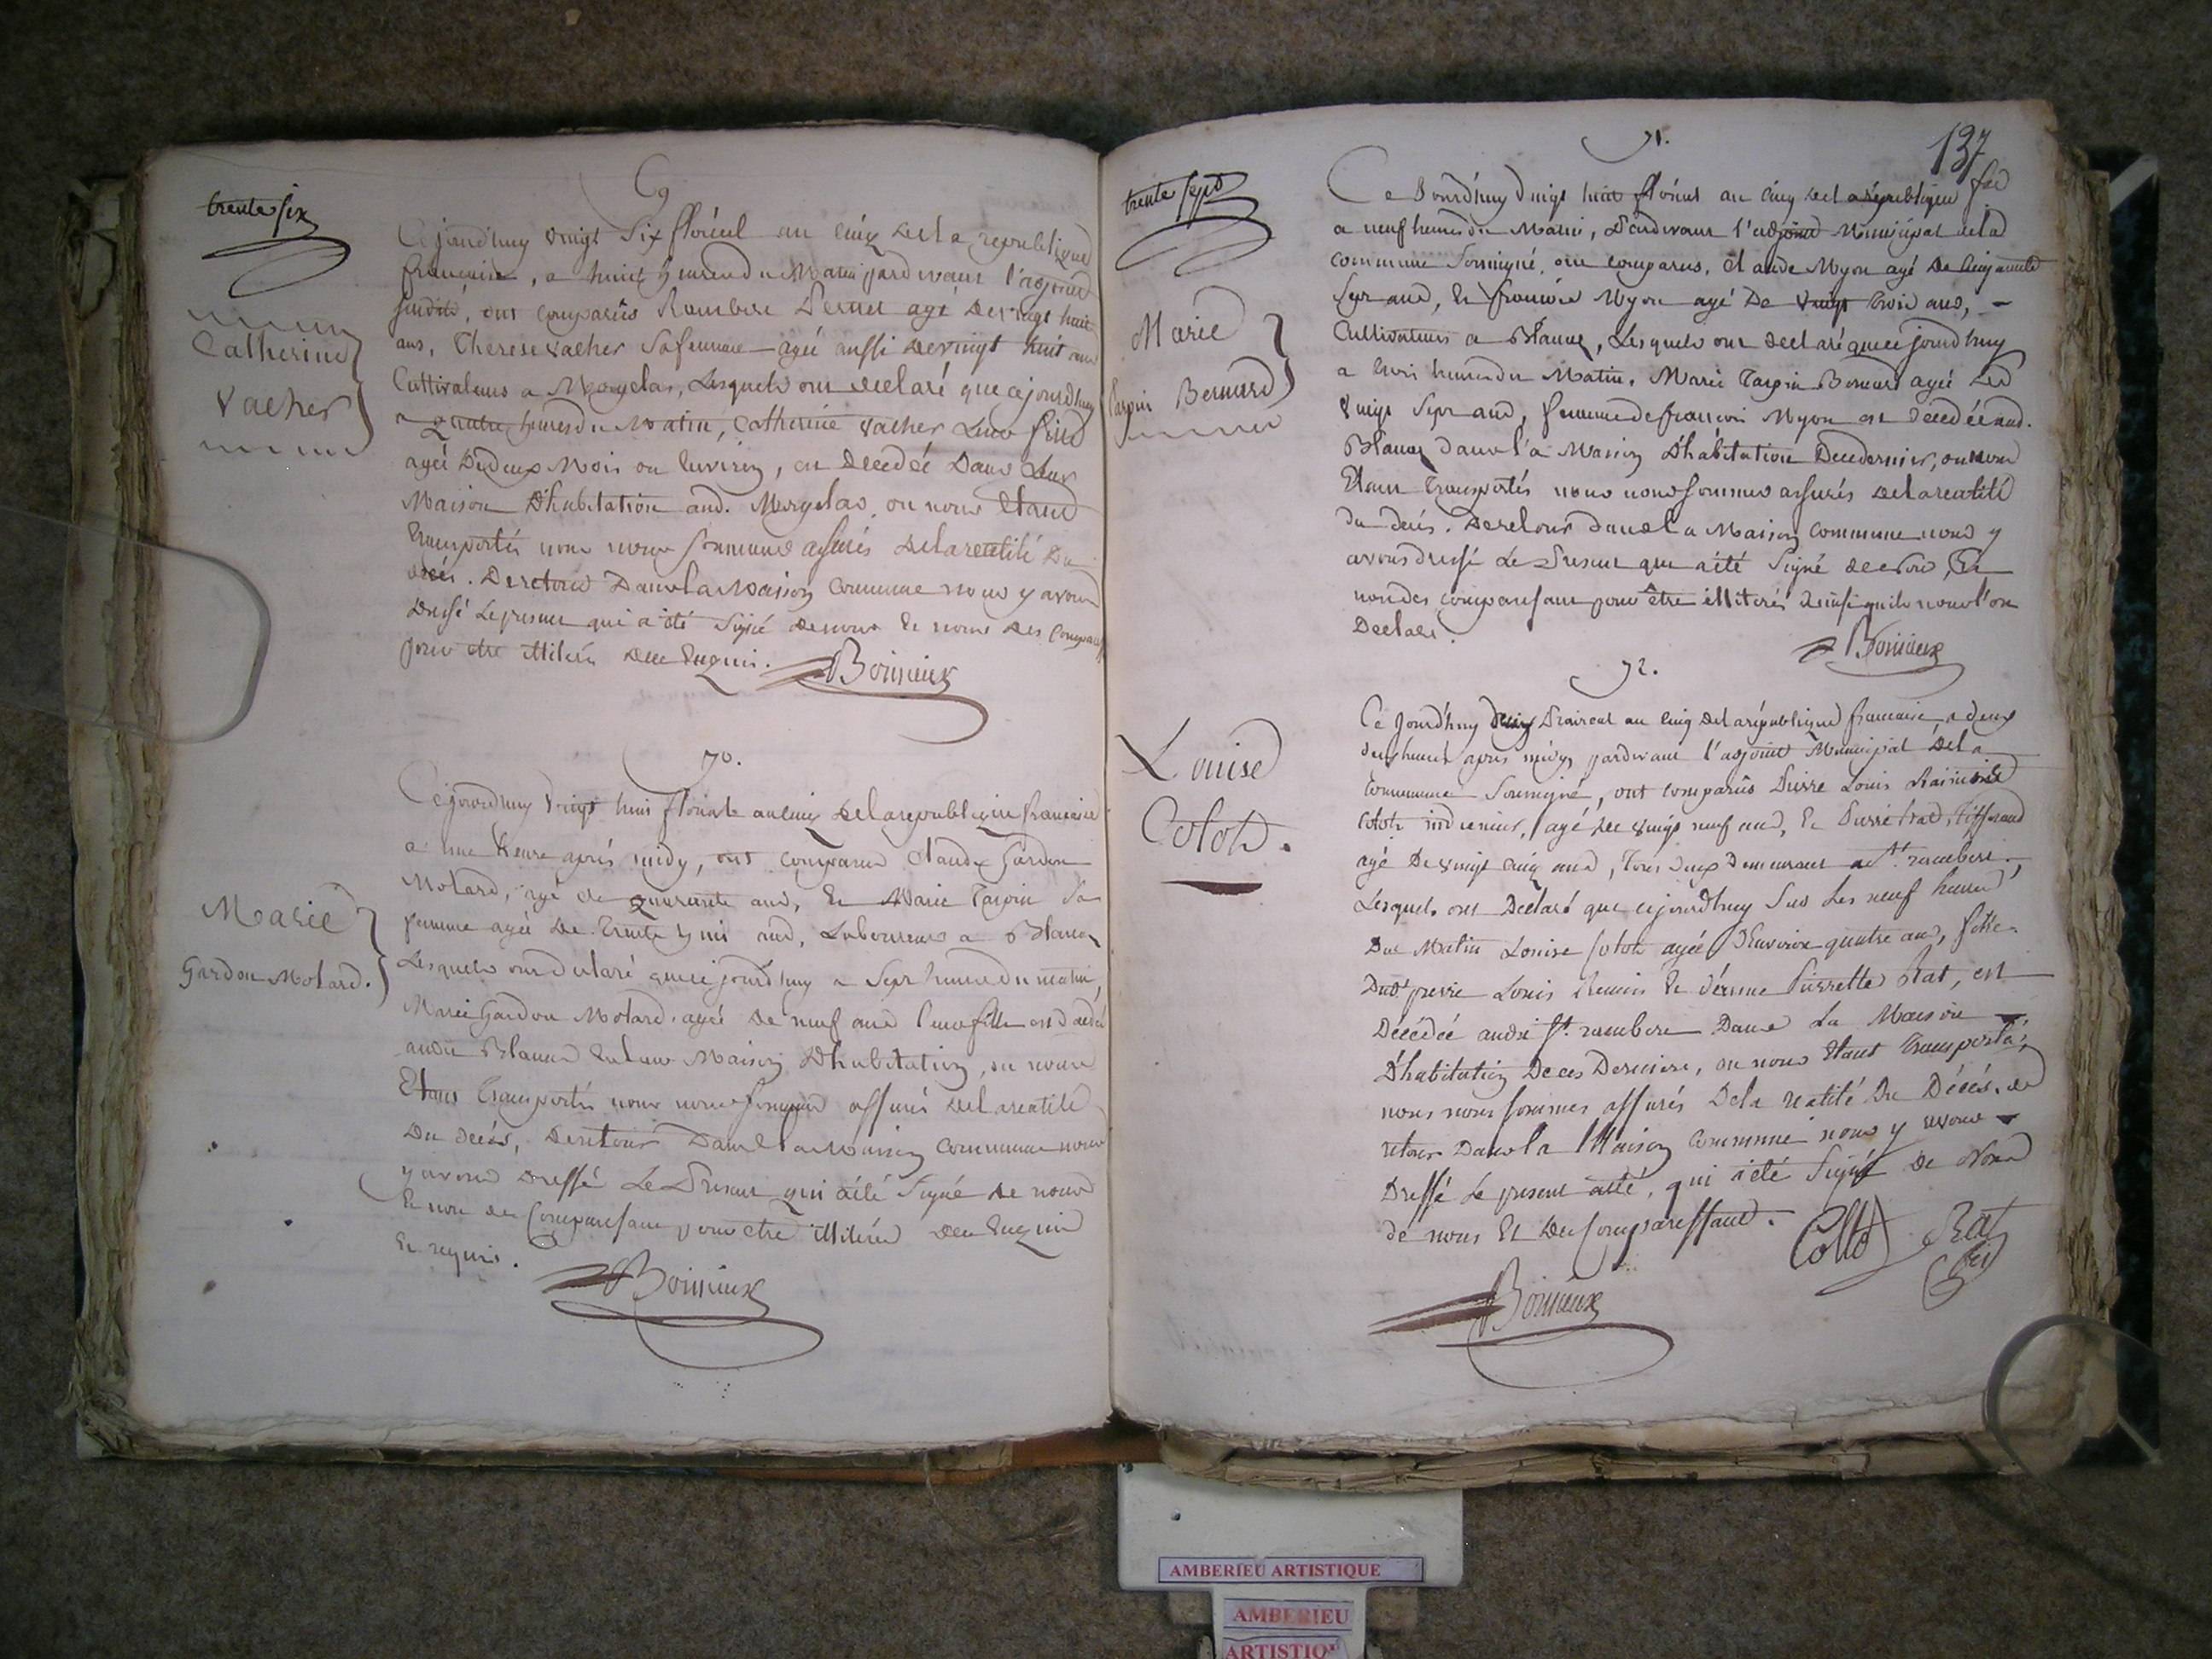 trente six
Catherine
Vacher
69
Cejourdhuy vingt Six floréal an cinq dela republique
francaise, a huict heures du Matin pardevant l'adjoint
susdit, ont comparûs Rambert Pernet agé de vingt huit
ans, Therese vacher Safemme agée aussi de vingt huit ans
Cultivateurs a Morgelas, Lesquels ont declaré que cejourdhuy
a quatre heures du Matin, Catherine vacher Leur fille
agée De deux Mois ou Environ, est Decedée Dans Leur
Maison D'habitation aud. Morgelas, ou nous Etant
transportés nous nous sommes assurés Delareatité Du
décés. Deretour Dans la Maison Commune nous y avons
Dressé Le present qui a été Signé de nous et nom des Compar
pour etre illiteré Dece Enquis.
Bonnieux
70.
Marie
Gardon Motard.
Cejourdhuy vingt huit floréal an cinq Delarepublique francaise
a une heure aprés midy, ont comparus Claude Gardon
Motard, agé de quarante ans, Et Marie Tarpin Sa
femme agée De trente huit ans, Laboureurs a Blanaz
Lesquels ont declaré que cejourdhuy a Sept heures du matin,
Marie Gardon Motard agée De neuf ans Leur fille est decedée
audit Blanaz en Leur Maison D'habitation, ou nous
Etans transportés nous nous sommes assurés Delareatité
Du decés, Deretour Dans la Maison Commune nous
y avons Dressé Le Present qui a été Signé de nous
Et non des Comparessant pour etre illiteré Dece Enquis
Et requis.
Bonnieux
137
trente sept
Marie
Tarpin Bernard
71.
Ce Jourdhuy vingt huit floréal an cinq dela république
a neuf heures du Matin, Pardevant l'adjoint Municipal dela
commune Soussigné, ont comparus, Claude Myon agé De cinquante
Sept ans, Et francois Myon agé De vingt trois ans,
Cultivateurs a Blanaz, Lesquels ont declaré que cejourdhuy
a trois heures du Matin, Marie Tarpin Bernard agée de
vingt Sept ans, femme de francois Myon est decedée aud.
Blanaz dans la Maison D'habitation Dece dernier, ou nous
Etant transportés nous nous sommes assurés Delareatité
du decés. Deretour dans la Maison Commune nous y
avons dressé Le Present qui a été Signé de nous, Et
non des comparesant pour être illiterés ainsi quils nous l'on
Declaré.
Bonnieux
72.
Louise
Colot.
Ce Jourdhuy Praireal an cinq Dela république francaise, a deux
heures apres midy, pardevant l'adjoint Municipal Dela
Commune Soussigné, ont comparûs Pierre Louis
Colot, agé De vingt neuf ans, Et Pierre Rat, Tisserand
agé De vingt cinq ans, tous deux Demeurant a St. rambert,
Lesquels ont Declaré que cejourdhuy Sur Les neuf heures
Du Matin Louise Colot agée d'Environ quatre ans, fille
Dudt. pierre Louis Et d'éeume Pierrette Rat, est
Décédée audit St. rambert Dans La Maison
D'habitation De ces Derniers, ou nous Etant transportés,
nous nous sommes assurés Dela reatité Du Décés. de
retour Dans la Maison Commune nous y avons
Dressé Le present acte, qui a été Signé De Nous
de nous Et Des Comparessant.
Collo
Rat
Bonnieux
AMBERIEU ARTISTIQUE
AMBERIEU
ARTISTIQ